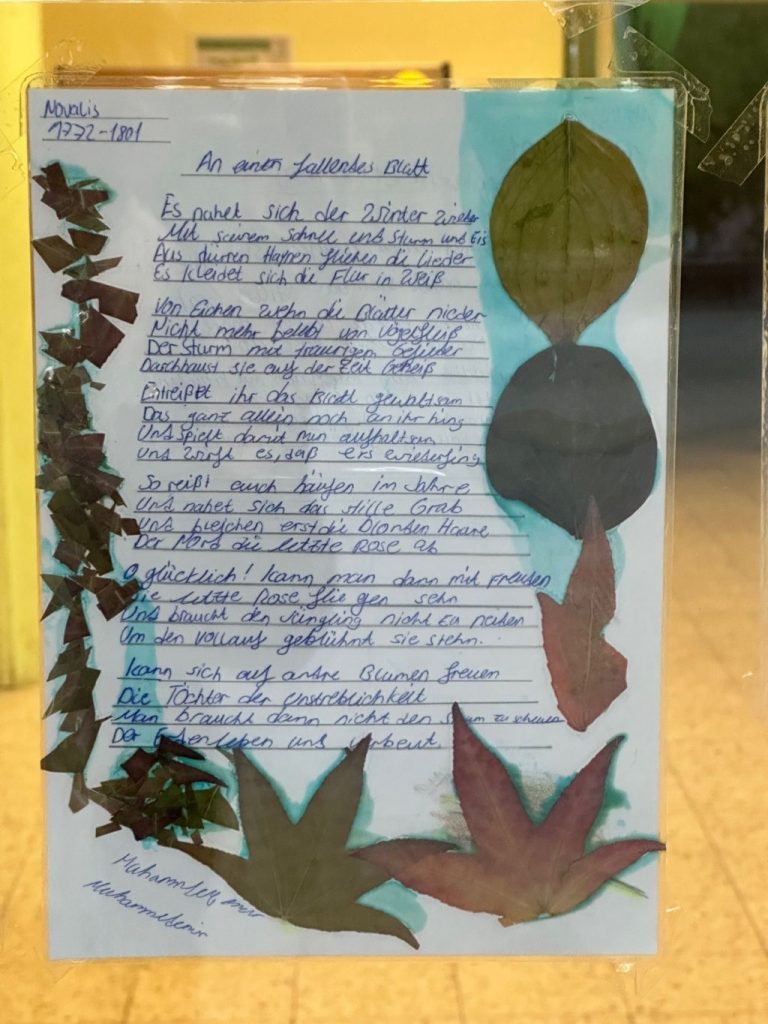 Novalis
1772-1801
An einen fallendes Blatt
Es nahet sich der Winter wieder
Mit seinem Schnee und Sturm und Eis
Aus dürren Haynen fliehen die Lieder
Es kleidet sich die Flur in Weiß
Von Eichen wehn die Blätter nieder
Nicht mehr belebt von Vögelfleiß
Der Sturm mit traurigem Gefieder
Durchhaust sie auf der Zeit Geheiß
Entreißet ihr das Blatt gewaltsam
Das ganz allein noch an ihr hing
Und spielt damit nun
Und wirft es, daß ers wiederfing
So reißt auch häufen im Jahre
Und nahet sich das stille Grab
Und bleichen erst die blonden Haare
Der Nord die letzte Rose ab
O glücklich! kann man dann mit Freuden
Die letzte Rose fliegen sehn
Und braucht den Jüngling nicht zu neiden
Um den vollauf geblühnt sie stehn.
kann sich auf andre Blumen freuen
Die Töchter der
Man braucht dann nicht den zu scheuen
Der Erdenleben uns